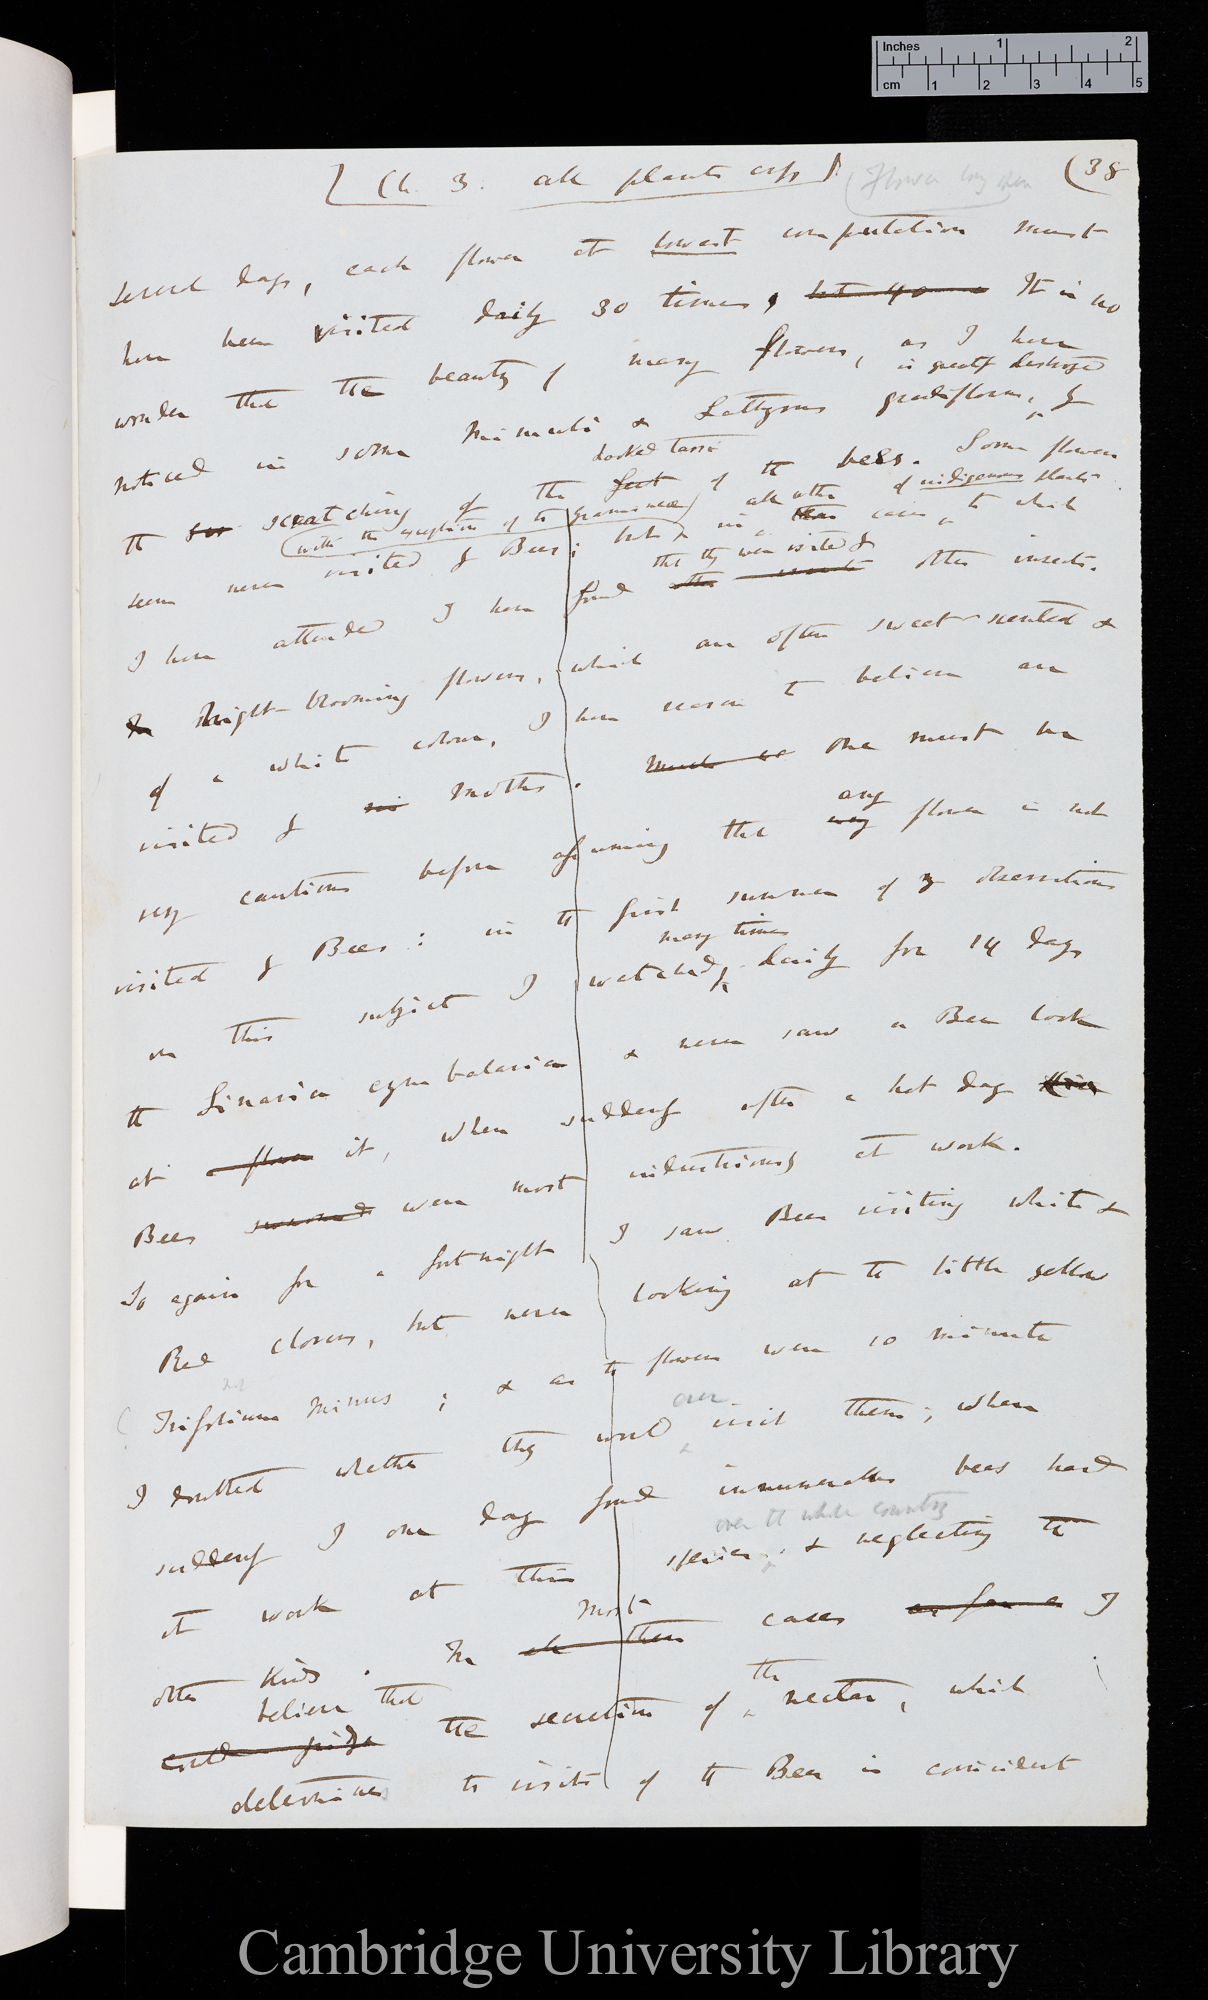 Inches 1 2
cm 1 2 3 4 5
[Ch. 3. all plants cross] (38
several days, each flower at lowest computation must
have been visited daily 30 times, It is no
wonder that the beauty of many flowers, as I have
noticed in some Mimuli & Lathyrus grandiflorus, is greatly destroyed by
the scratching of the hooked tarsi of the bees. Some flowers
seem never visited by Bees; (with the exception of the gramineae) but in all other cases of indigenous plants to which
I have attended I have found that they were visited by other insects.
Night-blooming flowers, which are often sweet-scented &
of a white colour, I have reason to believe are
visited by moths. One must be
very cautious before assuming that any flower is not
visited by Bees: in the first summer of my observations
on this subject I watched many times daily for 14 days
the Linaria cymbalaria & never saw a Bee look
at a flower it, when suddenly after a hot day
Bees swarmed were most industriously at work.
So again for a fortnight I saw Bees visiting white &
Red clovers, but never looking at the little yellow
Trifolium minus; & as the flowers were so minute
I doubted whether they would ever visit them; when
suddenly I one day found innumerable bees hard
at work at this species over the whole country, & neglecting the
other kinds. In most all these cases I
believe that the secretion of the nectar, which
determines the visits of the Bee is coincident
Cambridge University Library